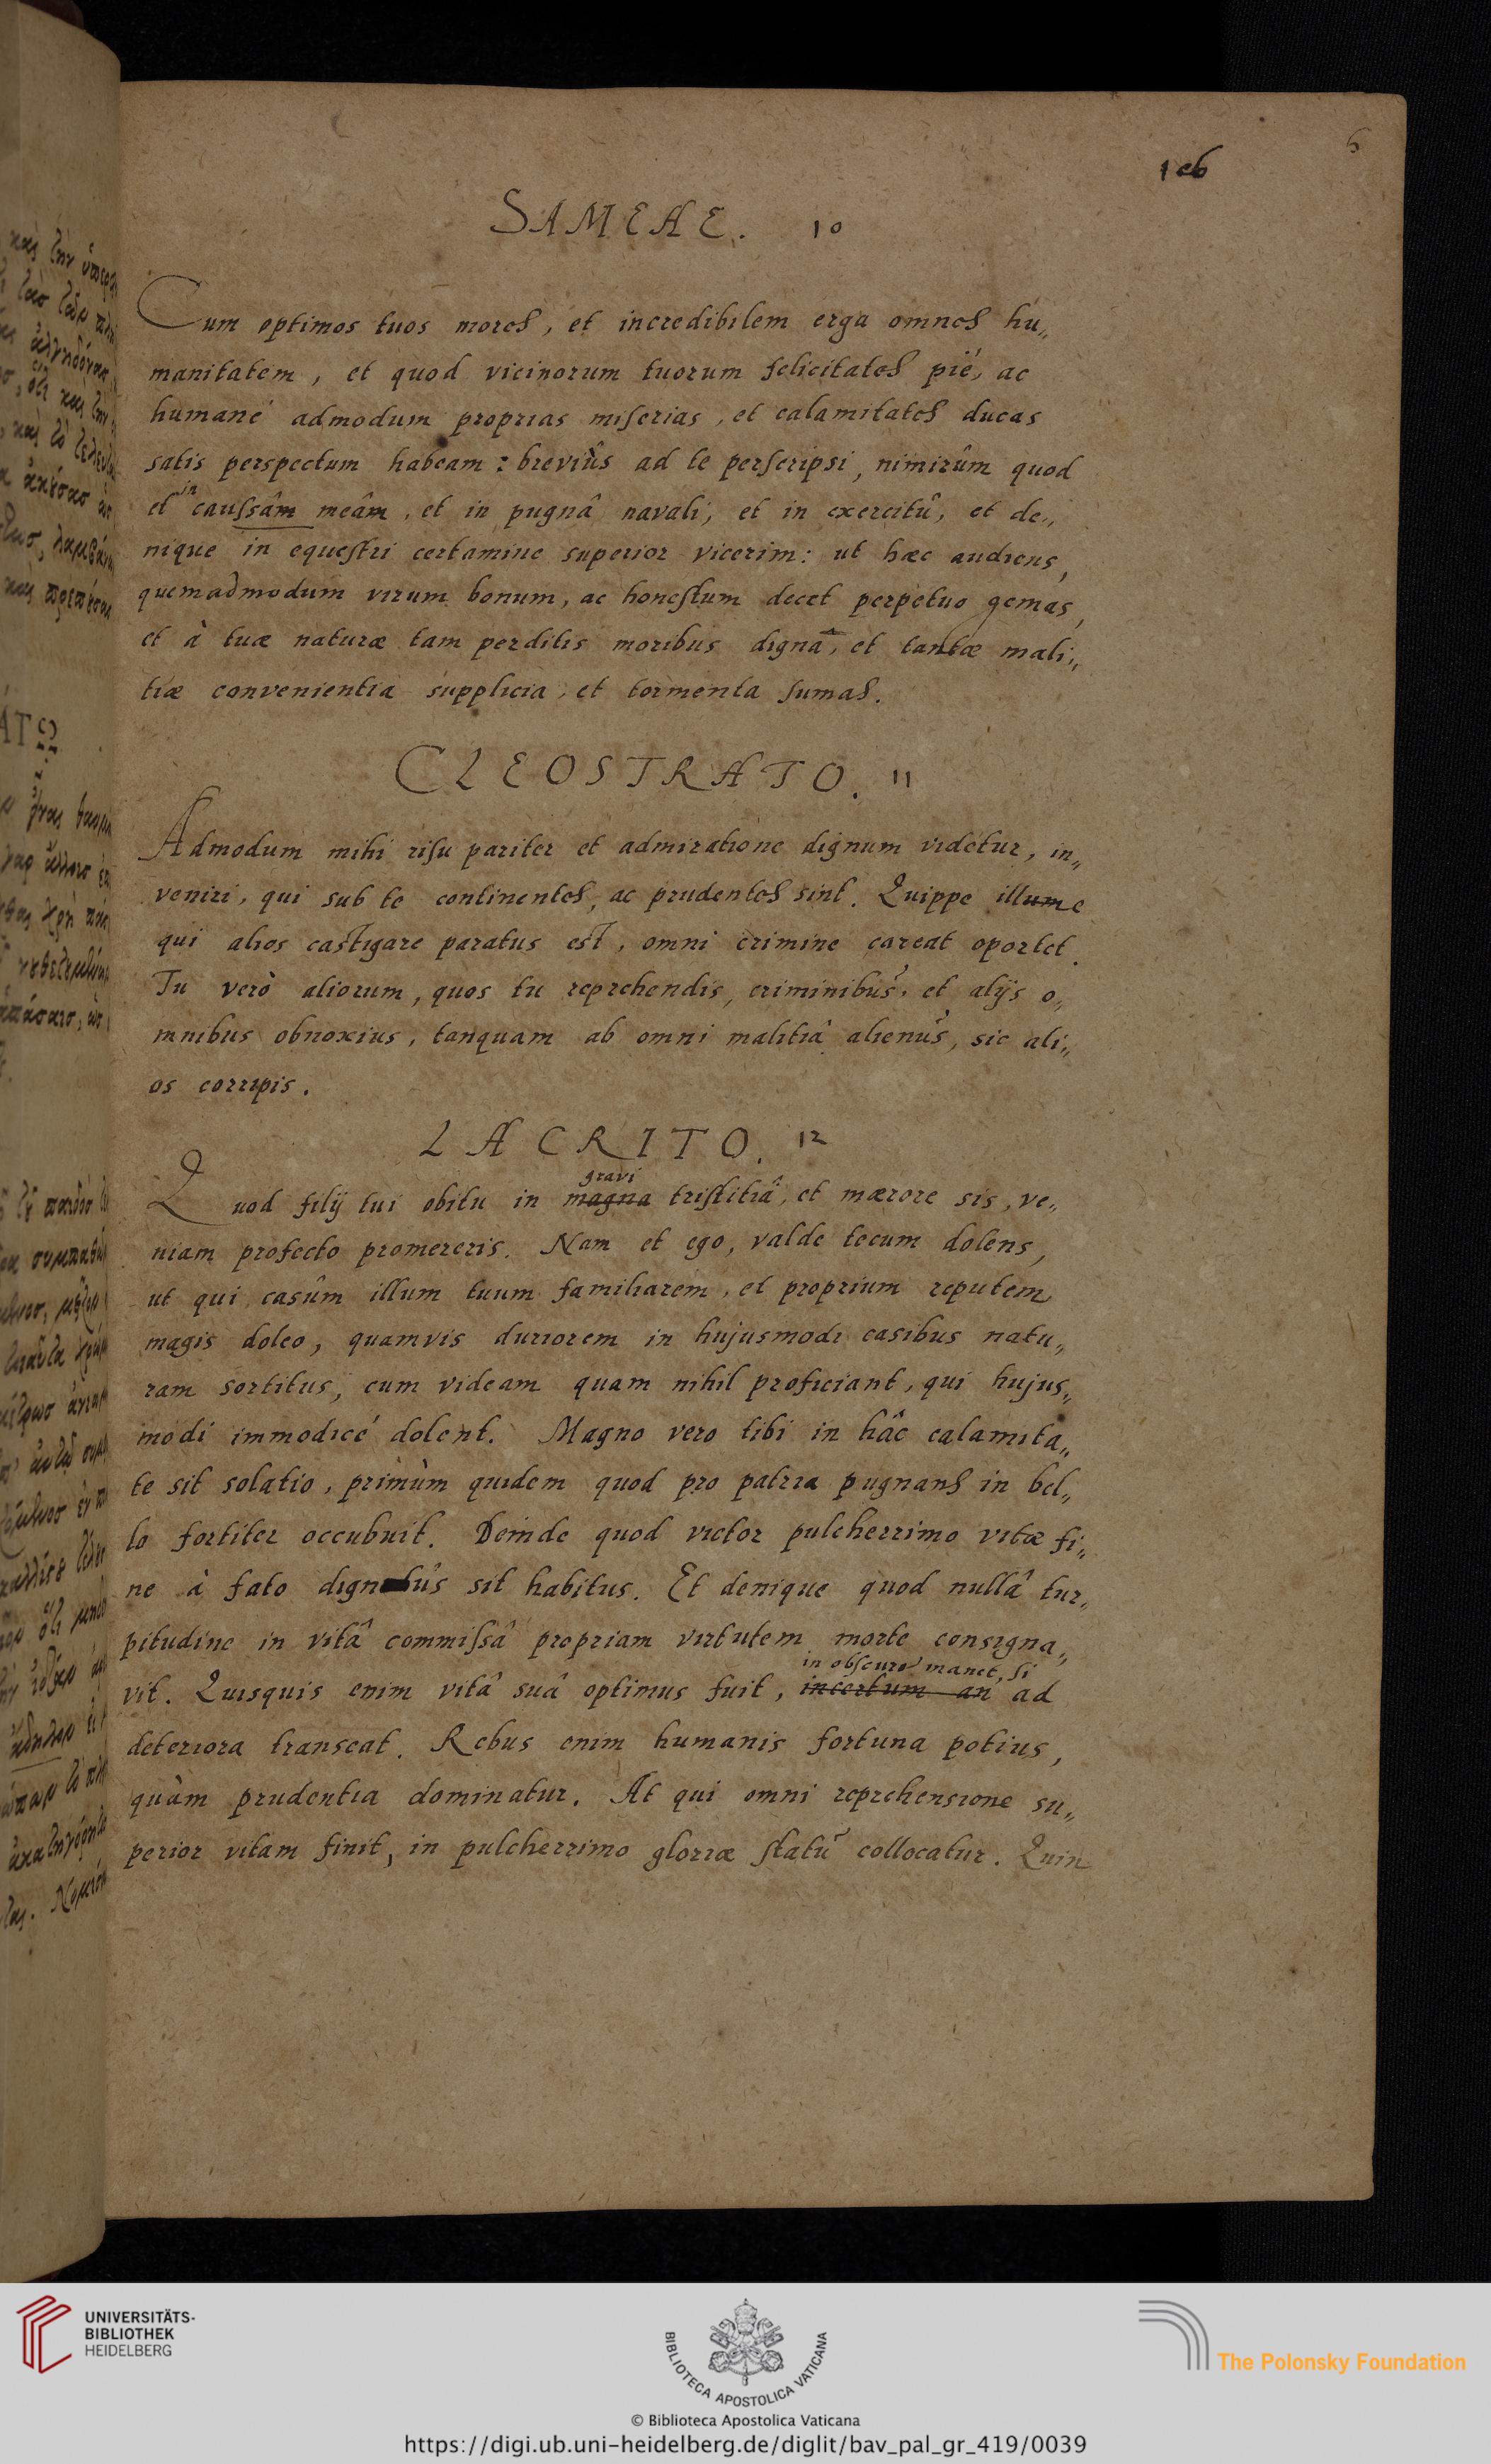 6
SAMEAE. 10
Cum optimos tuos mores, et incredibilem erga omnes hu„
manitatem, et quod vicinorum tuorum felicitates pié, ac
humané admodum proprias miſerias, et calamitates ducas
satis perspectum habeam: breviûs ad te perſcripsi, nimirûm quod
in
et cauſsâm meâm, et in pugnâ navali, et in exercitû, et de„
nique in equeſtri certamine superior vicerim: ut hæc audiens,
quemadmodum virum bonum, ac honeſtum decet perpetuo gemas,
et à tuæ naturæ tam perditis moribus digna, et tantæ mali„
tiæ convenientia supplicia, et tormenta ſumas.
CLEOSTRATO. 11
Admodum mihi riſu pariter et admiratione dignum videtur, in„
veniri, qui sub te continentes, ac prudentes sint. Quippe
qui alios caſtigare paratus eſt, omni crimine careat oportet.
Tu verò aliorum, quos tu reprehendis, criminibus, et alijs o„
mnibus obnoxius, tanquam ab omni malitiâ alienus, sic ali„
os corripis.
LACRITO. 12
gravi
Quod filij tui obitu in magna triſtitiâ, et mærore sis, ve„
niam profecto promereris. Nam et ego, valde tecum dolens,
ut qui casûm illum tuum familiarem, et proprium reputem
magis doleo, quamvis duriorem in hujusmodi casibus natu„
ram sortitus, cum videam quam nihil proficiant, qui hujus„
modi immodicé dolent. Magno vero tibi in hâc calamita„
te sit solatio, primùm quidem quod pro patria pugnans in bel„
lo fortiter occubuit. Deinde quod victor pulcherrimo vitæ fi„
ne à fato sit habitus. Et denique quod nullâ tur„
pitudine in vitâ commiſsâ propriam virtutem morte consigna„
in obſcuro manet, ſi
vit. Quisquis enim vitâ suâ optimus fuit, incertum an ad
deteriora transeat. Rebus enim humanis fortuna potius,
quàm prudentia dominatur. At qui omni reprehensione su„
perior vitam finit, in pulcherrimo gloriæ ſtatu collocatur. Quin
UNIVERSITÄTS-
BIBLIOTHEK
HEIDELBERG
BIBLIOTECA APOSTOLICA VATICANA
The Polonsky Foundation
© Biblioteca Apostolica Vaticana
https://digi.ub.uni-heidelberg.de/diglit/bav_pal_gr_419/0039